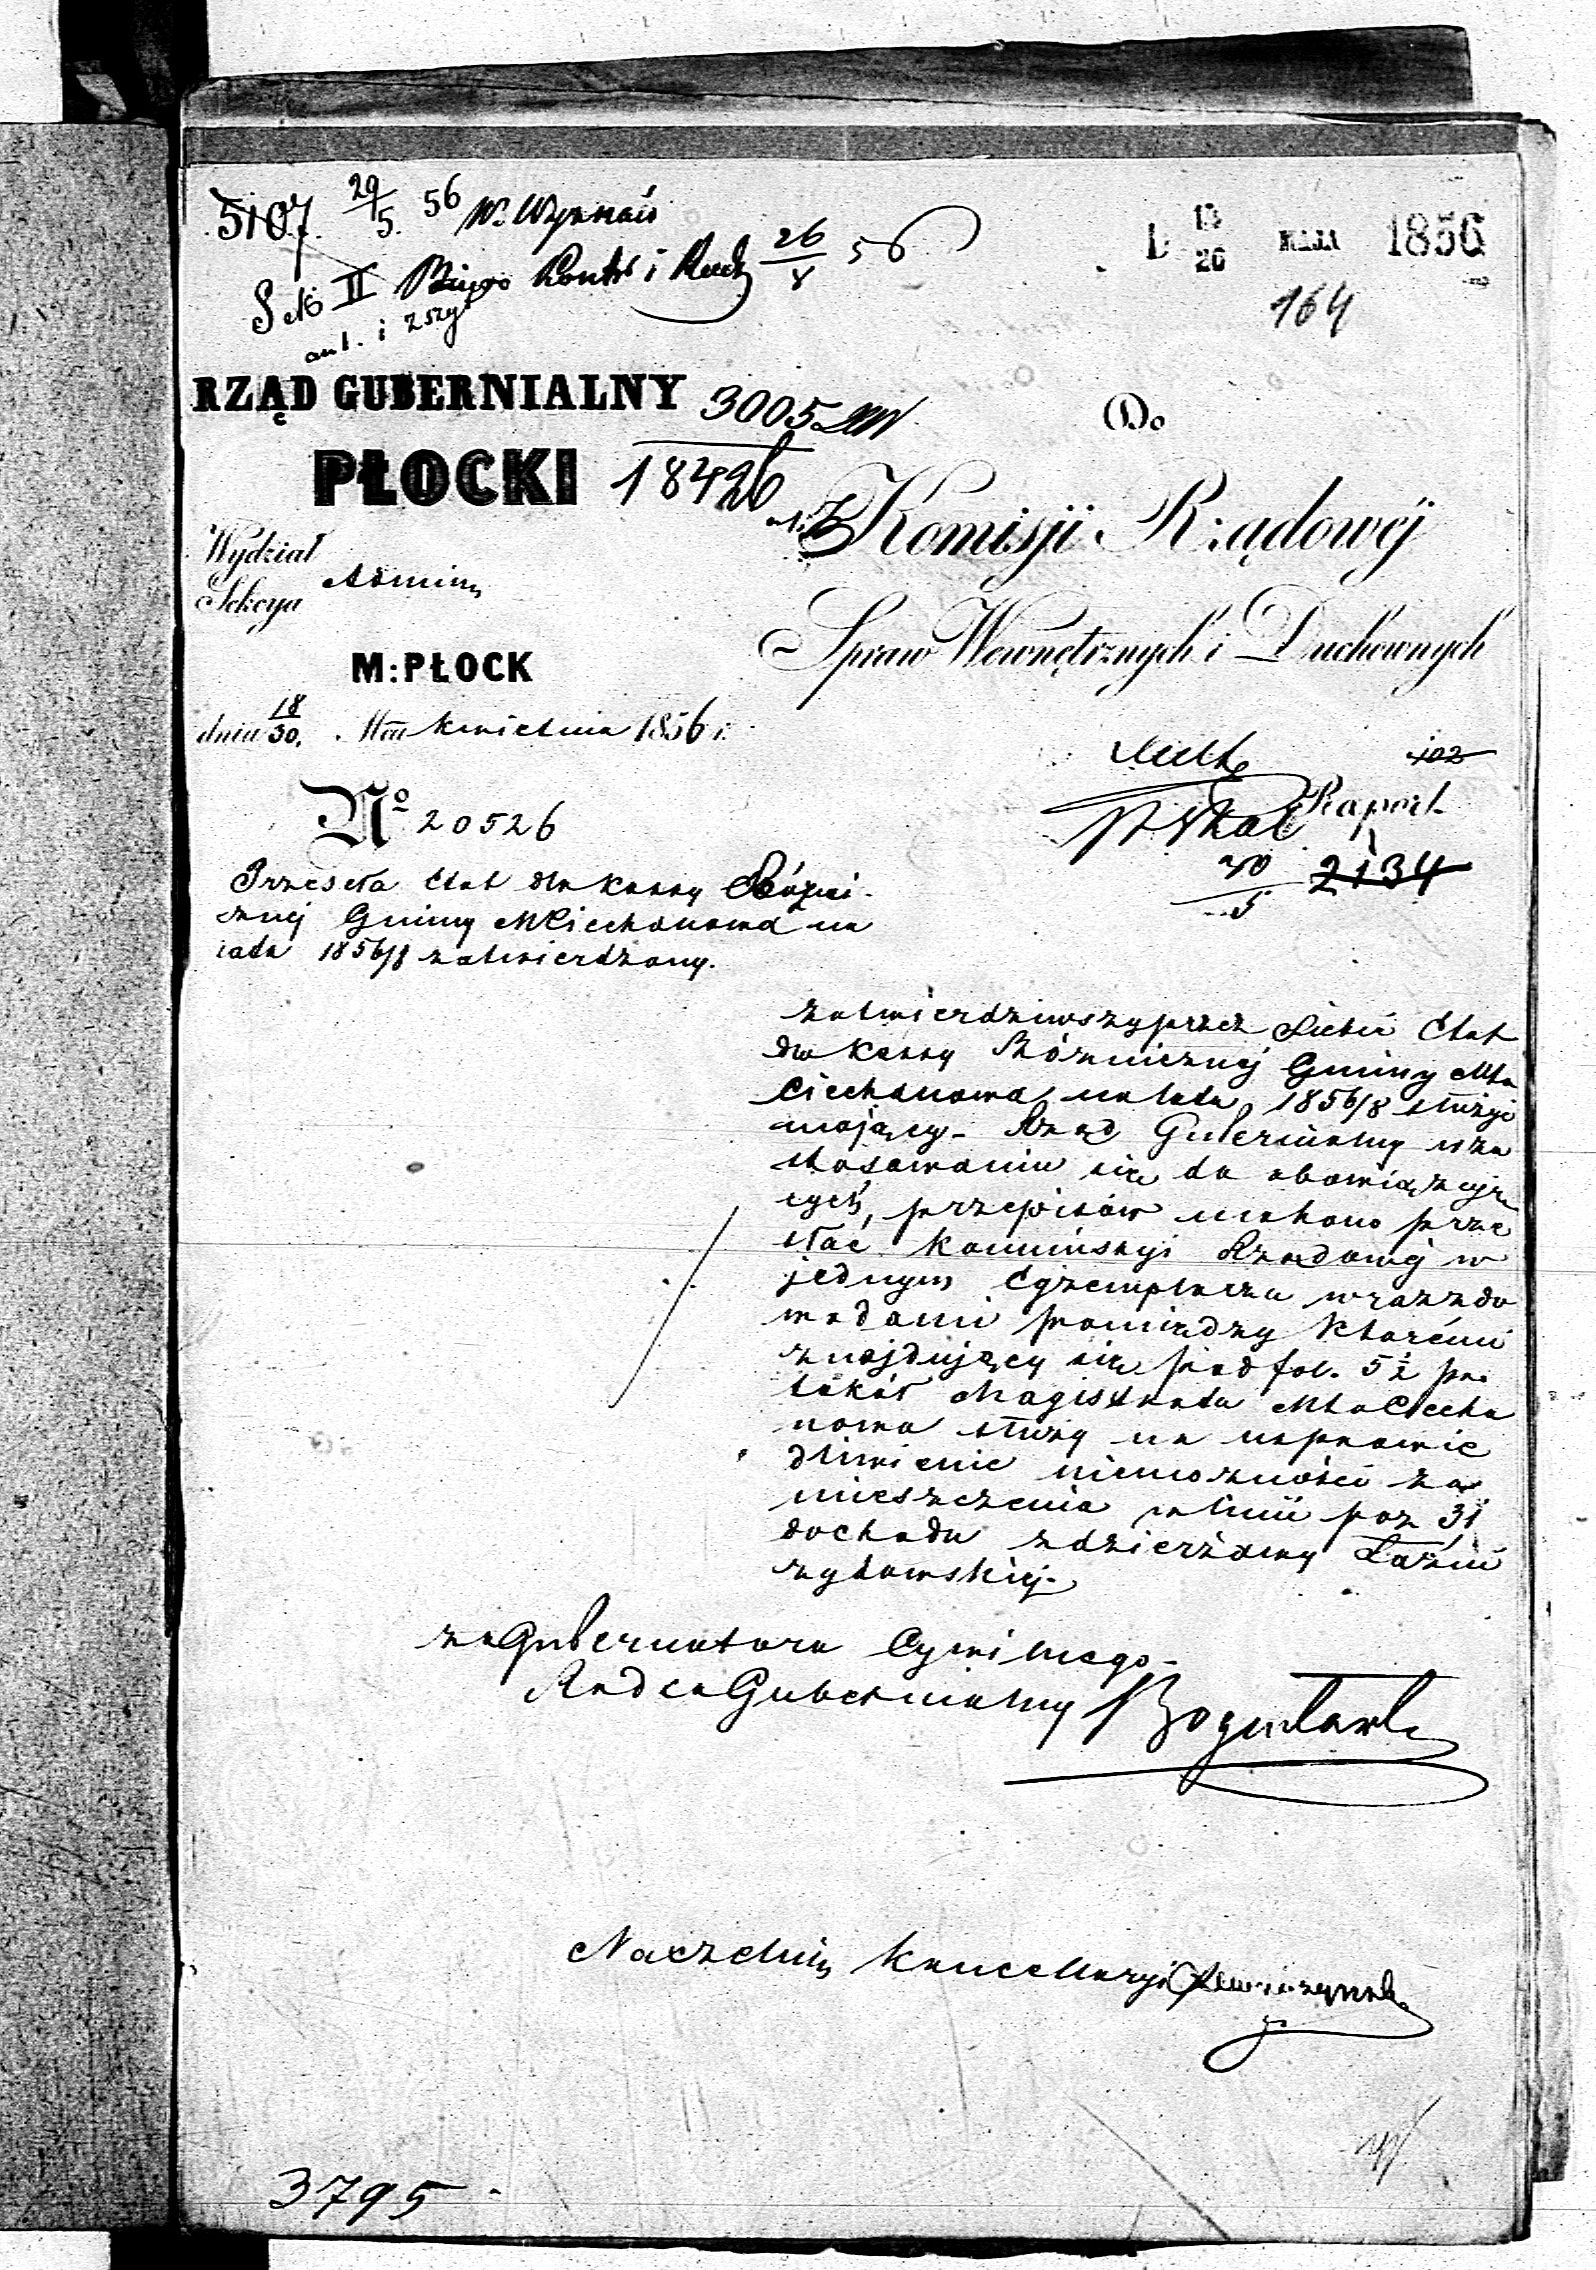 5107. 29/5. 56 W. Wyznań
Sek II Biuro Kontr i Rach 26/8 56
ant. i zszyć
13/26 MAJA 1856
164
RZĄD GUBERNIALNY
3005
PŁOCKI 18426
Do
Komisji Rządowéj
Spraw Wewnętrznych i Duchownych
Wydział
Sekcya Admin
M: PŁOCK
dnia 18/30. Mca Kwietnia 1856 r.
102
Raport
2134
No 20526
Przesyła Etat dla Kassy Bóżni-
cznej Gminy M Ciechanowa na
lata 1856/8 zatwierdzony.
Zatwierdziwszy przez Siebie Etat
dla Kassy Bóżnicznej Gminy Mta
Ciechanowa na lata 1856/8 służyć
mający - Rząd Gubernialny w za
stosowaniu się do obowiązują
cych przepisów ma hono prze
słać Kommissyi Rządowej w
jednym Egzemplarzu wraz z do
wodami pomiędzy któremi
znajdujący się pod fol. 5 1/2 pro
tokół Magistratu Mta Ciecha
nowa służy na usprawie
dliwienie niemożności za
mieszczenia w linii poz 31
dochodu z dzierżawy Łaźni
żydowskiej.
za Gubernatora Cywilnego
Radca Gubernialny
Naczelnik Kancellaryi
3795